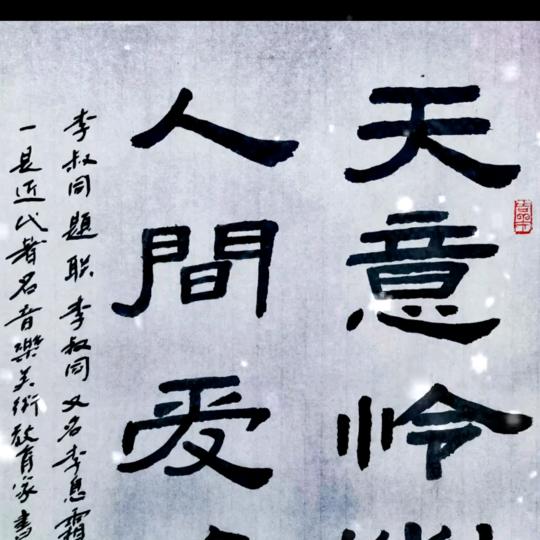 天意怜
人間爱
李叔同題联李叔同又名李息霜
一是近代著名音樂美術教育家書